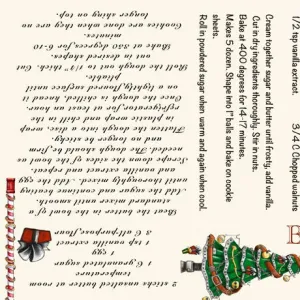 1/2 tsp vanilla extract.
3/4 C Chopped walnuts
Cream together sugar and butter until frosty, add vanilla.
Cut in dry ingredients thoroughly. Stir in nuts.
Bake at 400 degrees for 14-17 minutes.
Makes 5 dozen. Shape into 1" balls and bake on cookie
sheets.
Roll in powdered sugar when warm and again when cool.
2 sticks unsalted butter at room
temperature
1 C granulated sugar
1 egg
1 tsp vanilla extract
3 C all-purpose flour
Beat the butter in the bowl of a
standard mixer until smooth.
Add the sugar and continue beating
until thoroughly mixed. Add the egg
and vanilla extract and repeat.
Scrape down the sides of the bowl as
needed. The dough should be firm
and no longer be sticky.
Flatten the dough into a disc, wrap
in plastic wrap and chill in the
refrigerator, for at least an hour.
Once the dough is chilled, knead it
on a lightly floured surface until
pliable.
Roll the dough out to 1/4" thick. Cut
out in desired shapes.
Bake at 350 degrees, for 6-10
minutes.
Cookies are done when they are no
longer shiny on top.